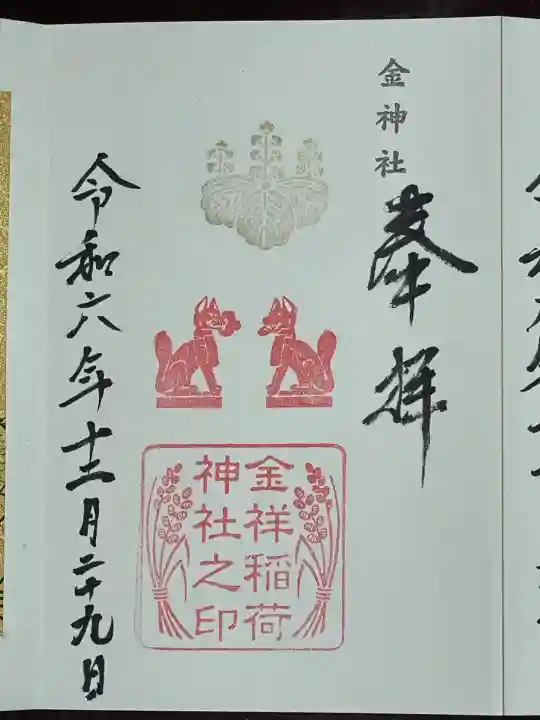 金神社
奉拝
金祥稲荷
神社之印
令和六年十二月二十九日